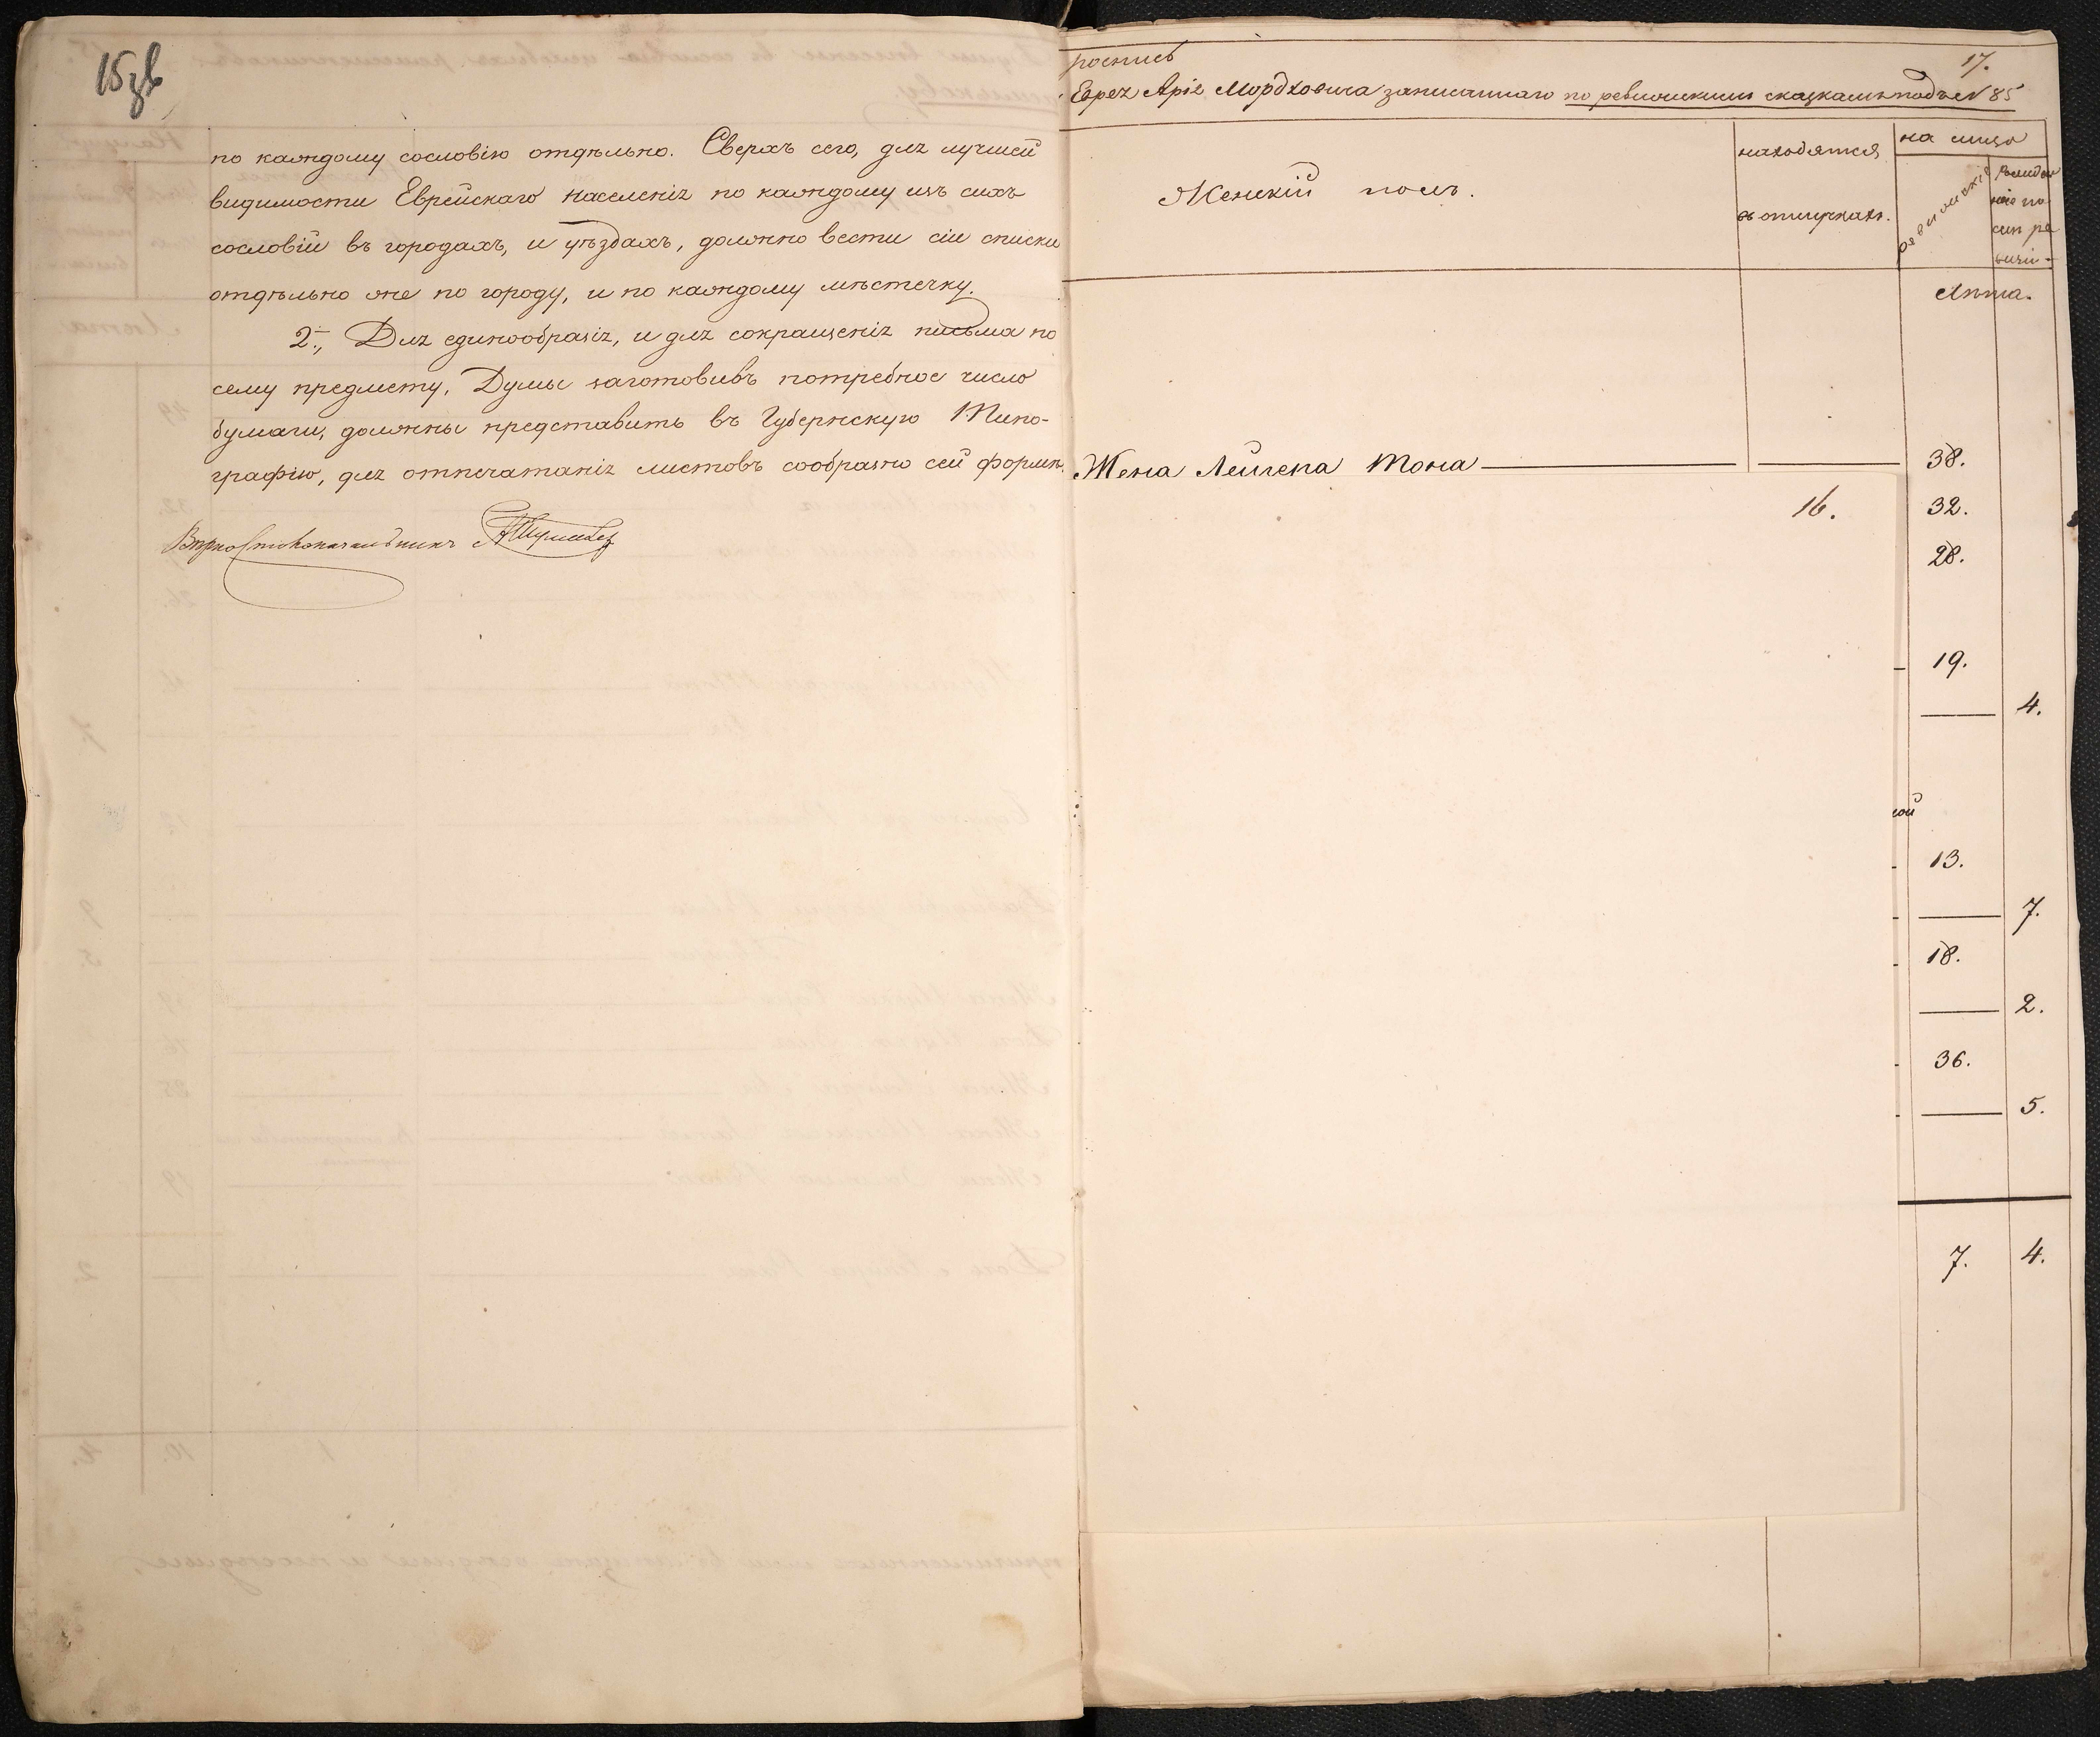 15 зв
по каждому сословію отдѣльно. Сверхъ сего, для лучшей
видимости Еврейскаго населенія по каждому изъ сихъ
сословій въ городахъ, и уѣздахъ, должно вести сіи списки
отдѣльно же по городу, и по каждому мѣстечку.
2., Для единообразія, и для сокращенія письма по
сему предмету, Думы заготовивъ потребное число
бумаги, должны представить въ Губернскую Типо-
графію, для отпечатанія листовъ сообразно сей формы.
Вѣрно Столоначальникъ
роспись
17.
Еврея Арія Мордховича записаннаго по ревизскимъ сказкамъ подъ № 85
Женскій полъ.
находятся
въ отлучкахъ.
на лицо
Лѣта.
Жена Лейзера Тона
38.
16.
32.
28.
19.
4.
кой
13.
7.
18.
2.
36.
5.
7.
4.